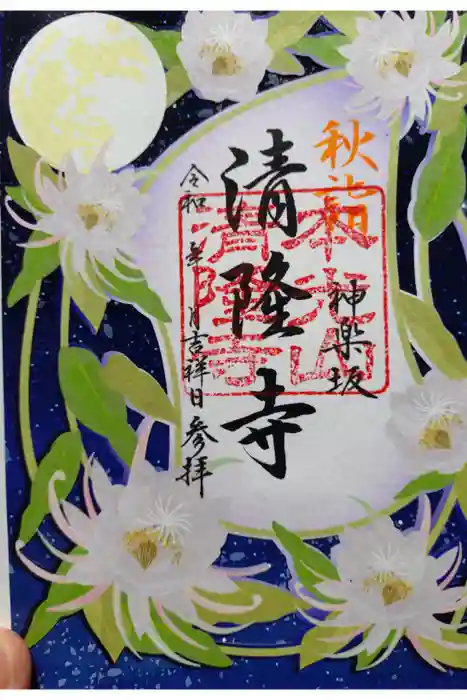 秋
神楽坂
本光山
清隆寺
清隆寺
令和 年 月吉祥日参拝